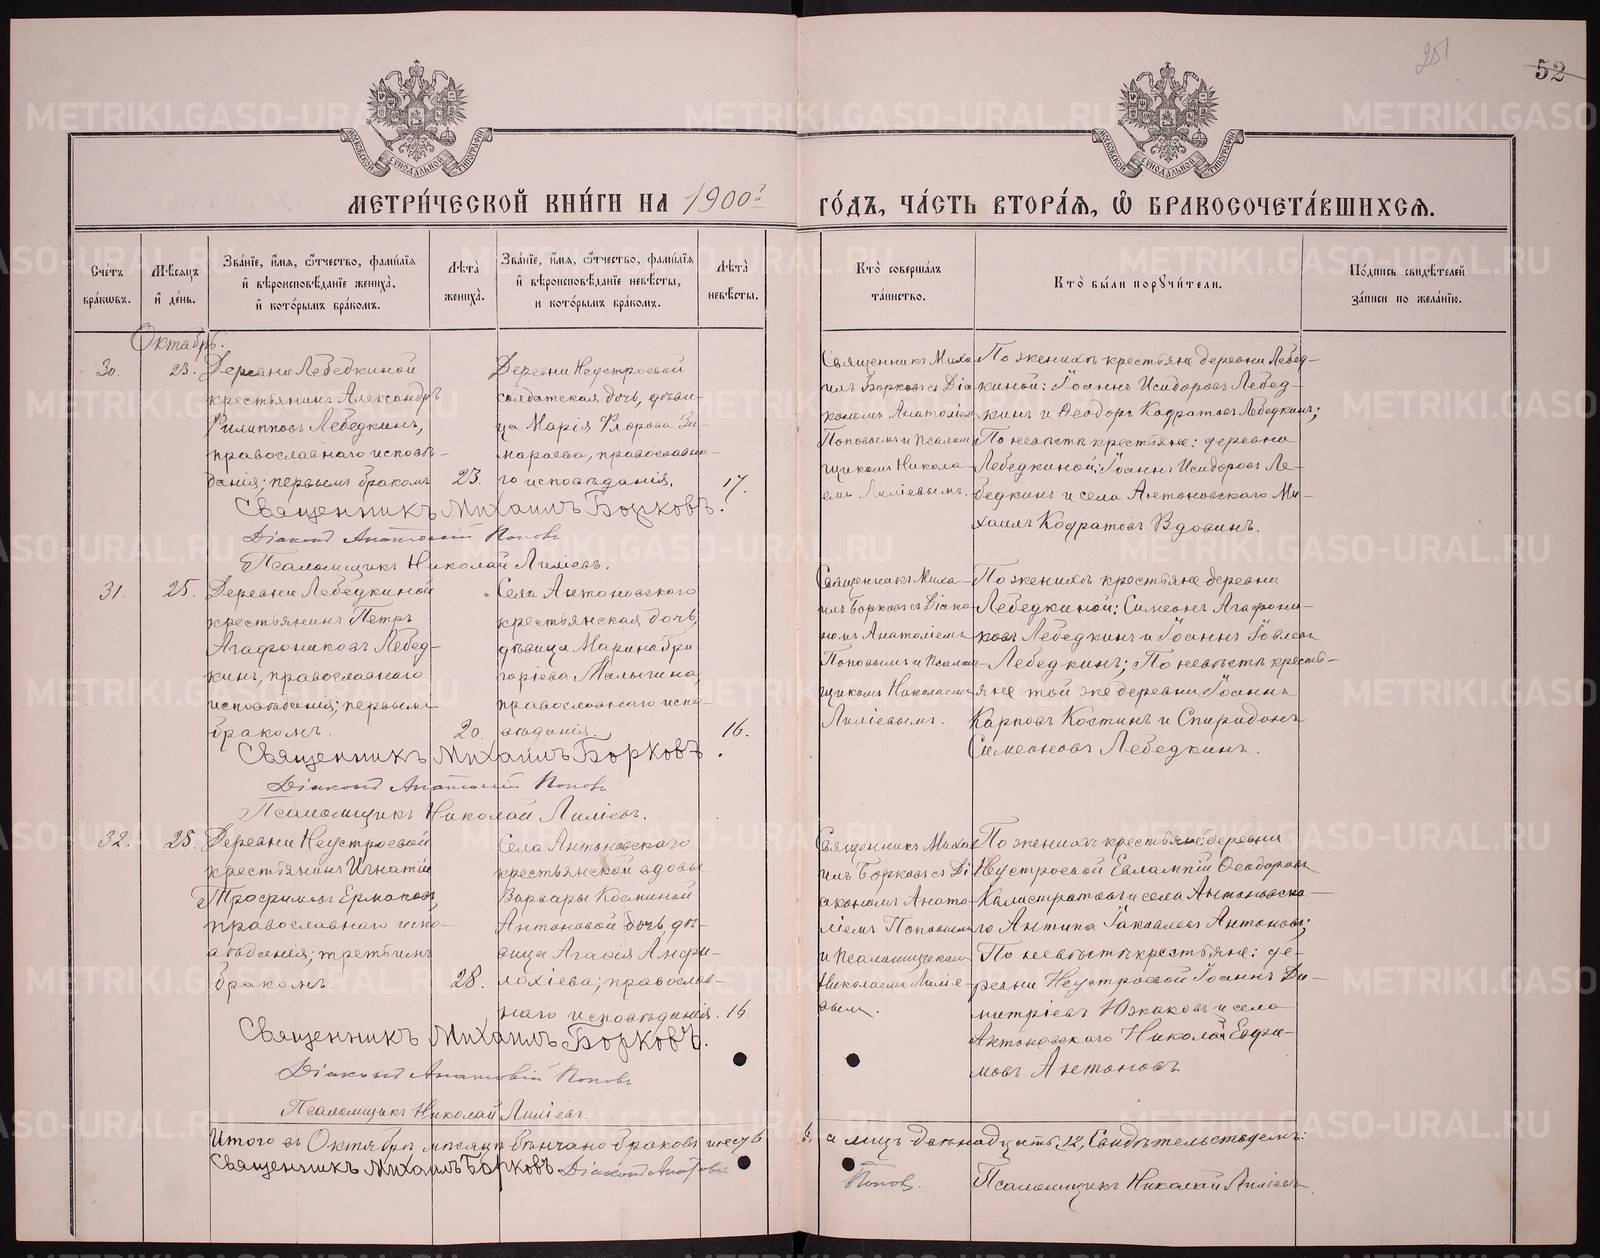 251
52
МЕТРИ́ЧЕСКОЙ КНИ́ГИ НА 1900й ГО́ДЪ, ЧА́СТЬ ВТОРА́Я, Ѽ БРАКОСОЧЕТА́ВШИХСЯ.
Сче́тъ бра́ковъ.
Мѣ́сяцъ и де́нь.
Зва́нїе, и́мя, ѻ́тчество, фами́лїя и вѣроисповѣ́данїе жениха̀, и кото́рымъ бра́комъ.
Лѣта̀ жениха̀.
Зва́нїе, и́мя, ѻ́тчество, фами́лїя и вѣроисповѣ́данїе невѣ́сты, и кото́рымъ бра́комъ.
Лѣта̀ невѣ́сты.
Кто̀ соверша́лъ та́инство.
Кто̀ бы́ли порꙋчи́тели.
По́дпись свидѣ́телей за́писи по жела́нїю.
Октябрь.
30.
23.
Деревни Лебедкиной
крестьянинъ Александръ
Филипповъ Лебедкинъ,
православнаго исповѣ-
данія; первымъ бракомъ
23.
Деревни Неустроевой
солдатская дочь, дѣви-
ца Марія Флорова Зи-
мараева, православна-
го исповѣданія.
17.
Священникъ Миха
илъ Борковъ съ Діа
кономъ Анатоліем
Поповымъ и Псалом
щикомъ Никола-
емъ Лиліевымъ.
По женихѣ крестьяне деревни Лебед-
киной: Іоаннъ Исидоровъ Лебед-
кинъ и Ѳеодоръ Кодратовъ Лебедкинъ;
По невѣстѣ крестьяне: деревни
Лебедкиной: Іоаннъ Исидоровъ Ле-
бедкинъ и села Антоновскаго Ми-
хаилъ Кодратовъ Вдовинъ.
Священникъ Михаилъ Борковъ.
Діаконъ Анатолій Поповъ
Псаломщикъ Николай Лиліевъ.
31.
25.
Деревни Лебедкиной
крестьянинъ Петръ
Агафониковъ Лебед-
кинъ, православнаго
исповѣданія; первымъ
бракомъ.
20.
Села Антоновскаго
крестьянская дочь,
дѣвица Марина Гри
горіева Малыгина,
православнаго испо-
вѣданія.
16.
Священникъ Миха-
илъ Борковъ съ Діако-
номъ Анатоліемъ
Поповымъ и Псалом-
щикомъ Николаемъ
Лиліевымъ.
По женихѣ крестьяне деревни
Лебедкиной: Симеонъ Агафони-
ковъ Лебедкинъ и Іоаннъ Іовлевъ
Лебедкинъ; По невѣстѣ крестъ-
яне той же деревни Іоаннъ
Карповъ Костинъ и Спиридонъ
Симеоновъ Лебедкинъ.
Священникъ Михаилъ Борковъ.
Діаконъ Анатолій Поповъ
Псаломщикъ Николай Лиліевъ.
32.
25.
Деревни Неустроевой
крестьянинъ Игнатій
Трофимовъ Ермаковъ,
православнаго испо-
вѣданія; третьимъ
бракомъ.
28.
Села Антоновскаго
крестьянской вдовы
Варвары Косминой
Антоновой дочь, дѣ-
вица Агаѳія Амфи-
лохіева; православ-
наго исповѣданія.
16.
Священникъ Миха
илъ Борковъ съ Ді
акономъ Анато-
ліемъ Поповымъ
и Псаломщикомъ
Николаемъ Лиліе-
вымъ.
По женихѣ крестьяне: деревни
Неустроевой Евлампій Ѳеодоровъ
Калистратовъ и села Антоновска-
го Антипа Іаковлевъ Антоновъ;
По невѣстѣ крестьяне: де-
ревни Неустроевой Іоаннъ Ди-
митріевъ Южаковъ и села
Антоновскаго Николай Евфи-
мовъ Антоновъ.
Священникъ Михаилъ Борковъ.
Діаконъ Анатолій Поповъ
Псаломщикъ Николай Лиліевъ.
Итого въ Октябрѣ мѣсяцѣ вѣнчано браковъ шесть 6, а лицъ двѣнадцать, 12, Свидѣтельствуемъ:
Священникъ Михаилъ Борковъ. Діаконъ Анатолій Поповъ. Псаломщикъ Николай Лиліевъ.
METRIKI.GASO-URAL.RU